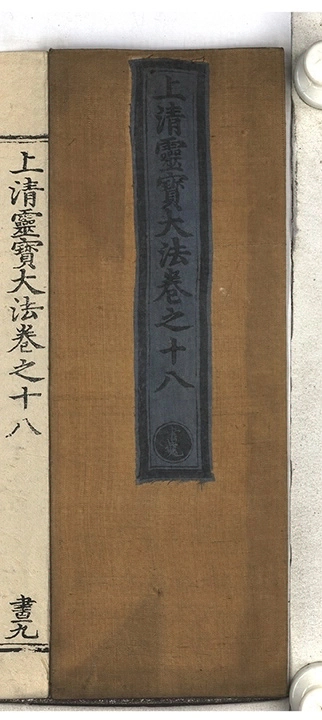 上清靈寶大法卷之十八
上清靈寶大法卷之十八
畫九